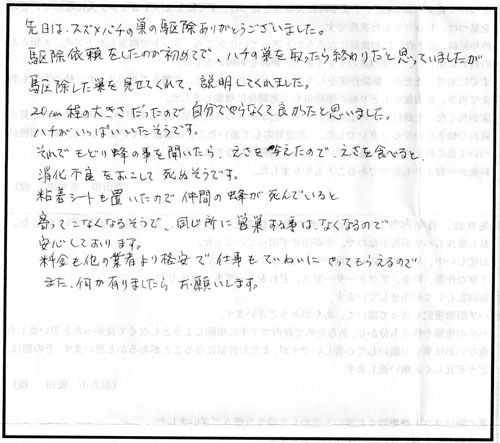 先日は、スズメバチの巣の駆除ありがとうございました。
駆除依頼をしたのが初めてで、ハチの巣を取ったら終わりだと思っていましたが
駆除した巣を見せてくれて、説明してくれました。
20cm程の大きさだったので自分でやらなくて良かったと思いました。
ハチがいっぱいいたそうです。
それでもどり蜂の事を聞いたら、えさを与えたので、えさを食べると、
消化不良をおこして死ぬそうです。
粘着シートも置いたので仲間の蜂が死んでいると
寄ってこなくなるそうで、同じ所に営巣する事は、なくなるので
安心しております。
料金も他の業者より格安で仕事もていねいにやってもらえるので
また、何か有りましたらお願いします。